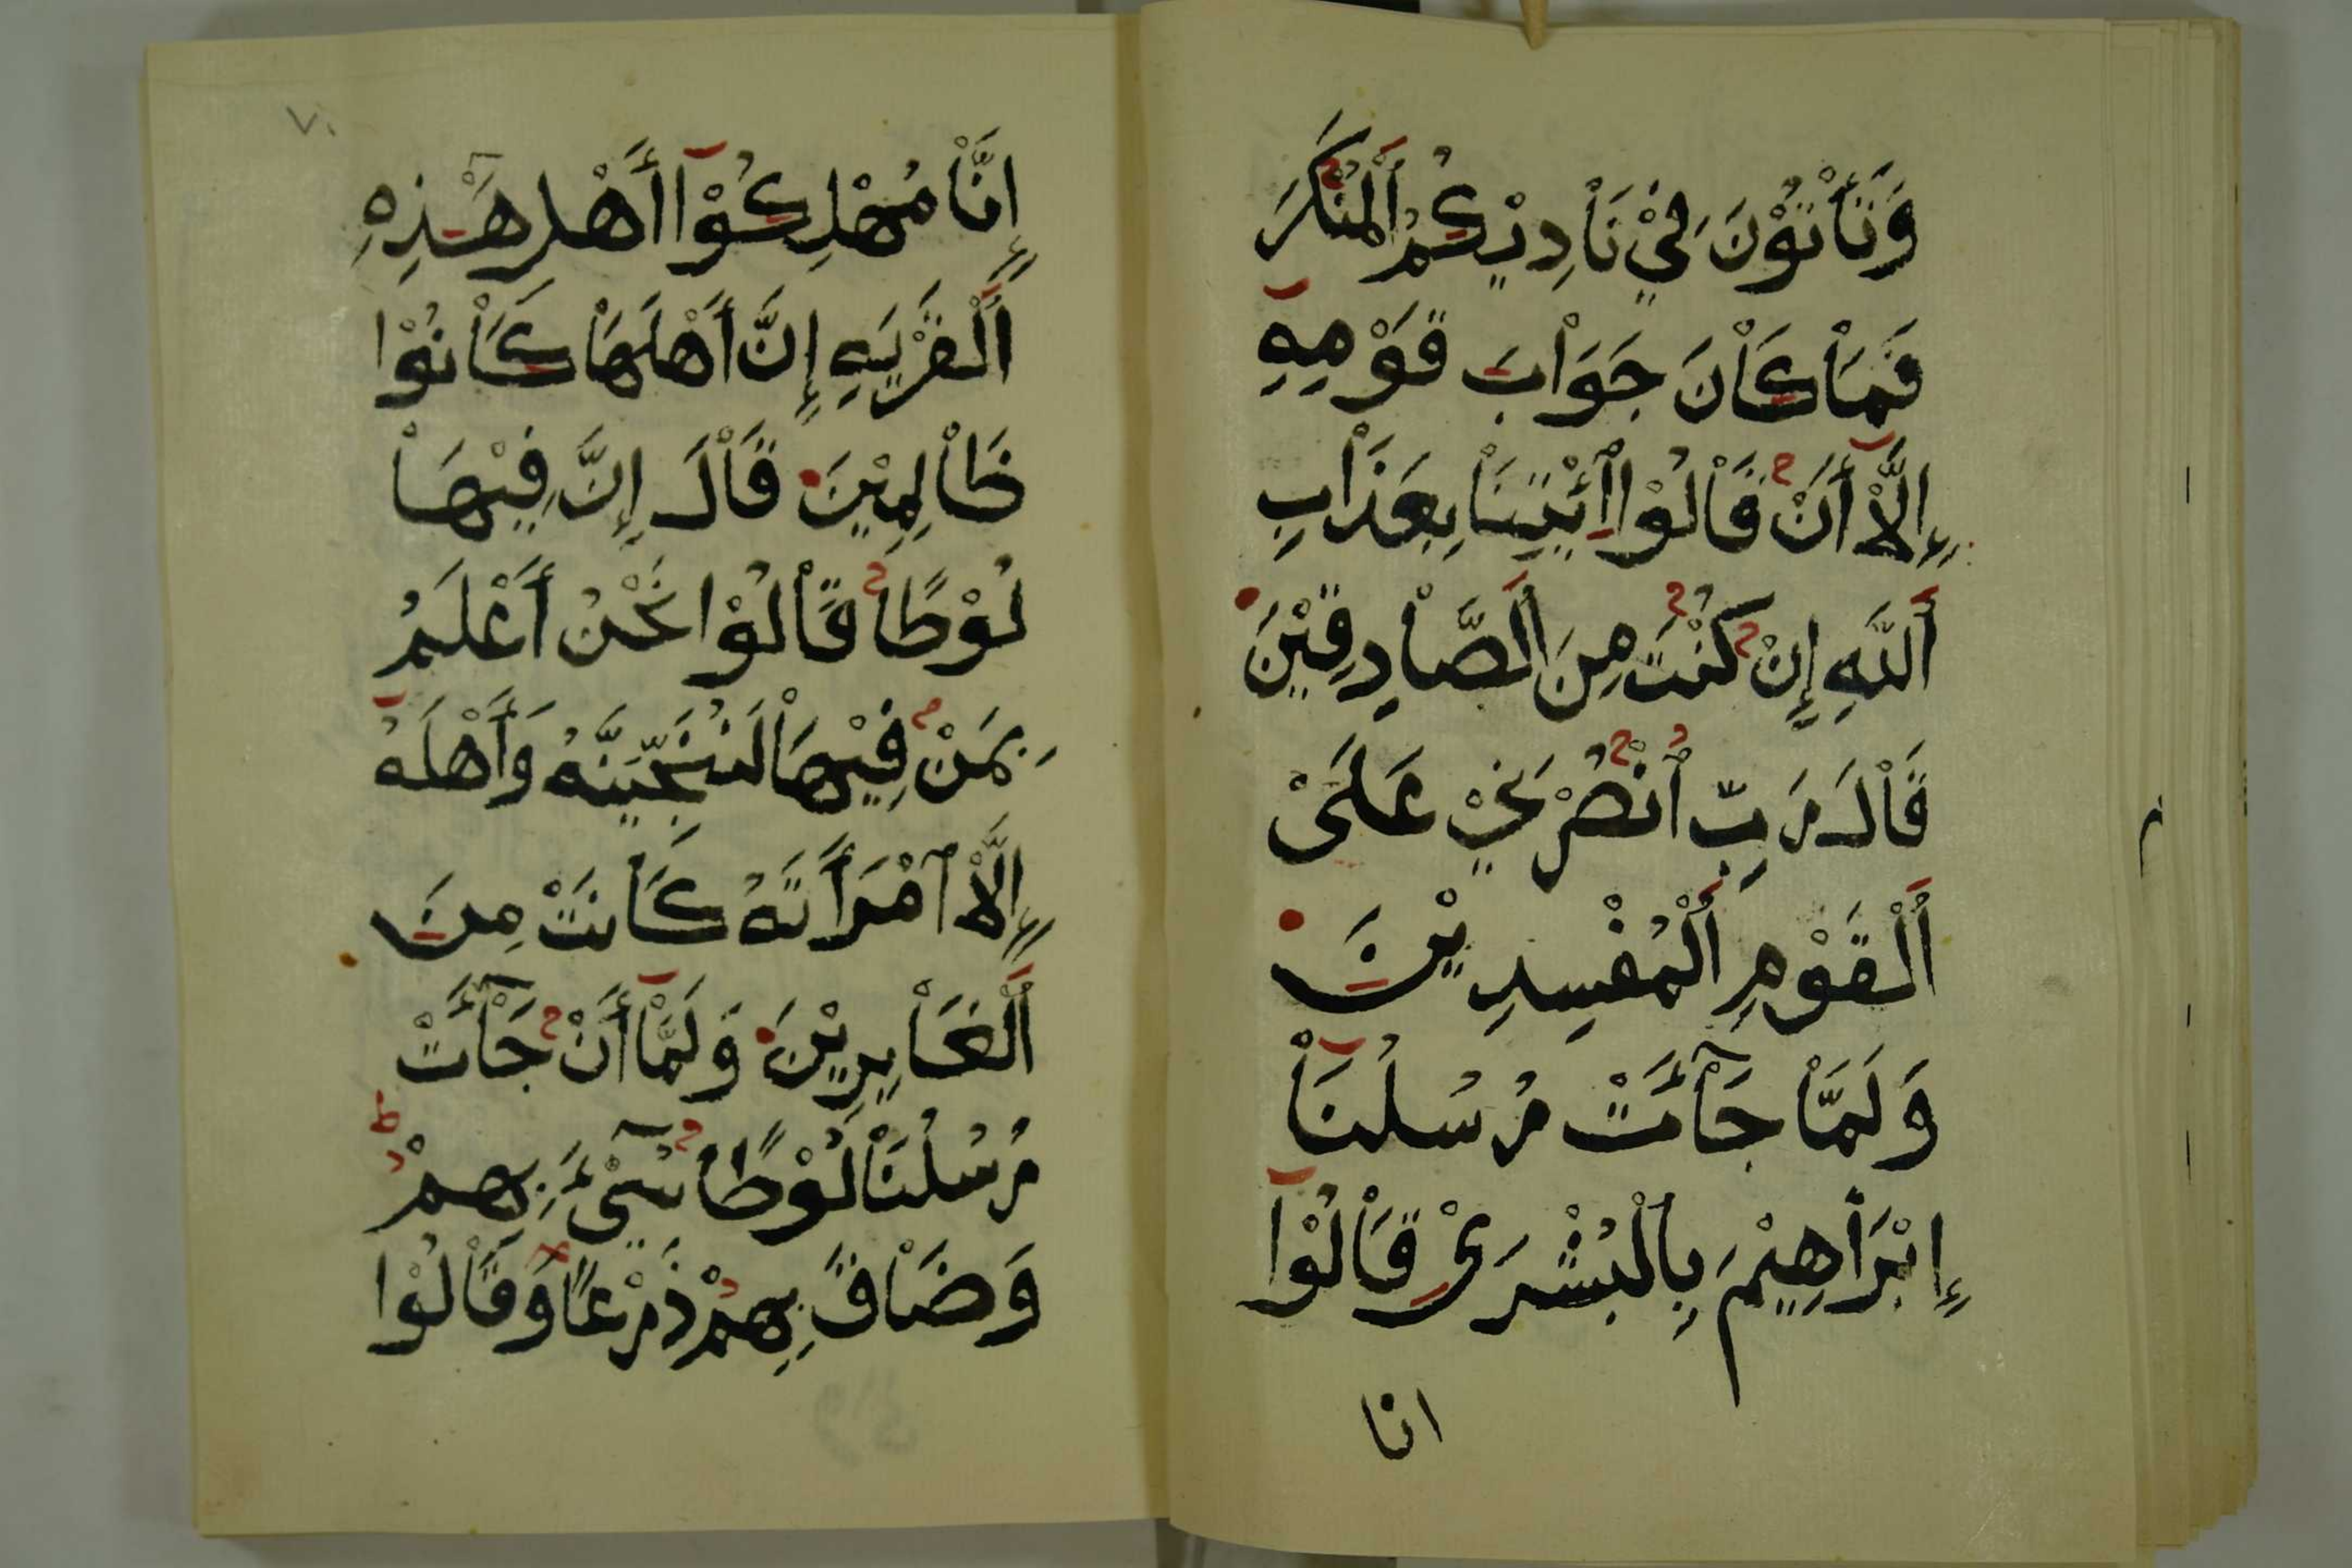 وَتَأْتُوْنَ فِيْ نَاْدِيْكُمُ اَلْمُنْكَرَ
فَمَاْ كَاْنَ جَوَاْبَ قَوْمِهِ
إِلَّاْ أَنْ قَاْلُوْا اْئْتِنَاْ بِعَذَاْبِ
اَللَّهِ إِنْ كُنْتَ مِنَ اَلصَّاْدِقِيْنَ
قَاْلَ رَبِّ اُنْصُرْنِيْ عَلَىْ
اَلْقَوْمِ اَلْمُفْسِدِيْنَ
وَلَمَّاْ جَآْءَتْ رُسُلُنَاْ
إِبْرَاْهِيْمَ بِالْبُشْرَىْ قَاْلُوْا
انا
٧٠
إِنَّاْ مُهْلِكُوْٓا أَهْلِ هَٰذِهِ
اَلْقَرْيَةِ إِنَّ أَهْلَهَاْ كَاْنُوْا
ظَاْلِمِيْنَ قَاْلَ إِنَّ فِيْهَاْ
لُوْطًاْ قَاْلُوْا نَحْنُ أَعْلَمُ
بِمَنْ فِيْهَاْ لَنُنَجِّيَنَّهُ وَأَهْلَهُ
إِلَّاْ اَمْرَأَتَهُ كَاْنَتْ مِنَ
اَلْغَاْبِرِيْنَ وَلَمَّاْ أَنْ جَآْءَتْ
رُسُلُنَاْ لُوْطًاْ سِيْٓءَ بِهِمْ
وَضَاْقَ بِهِمْ ذَرْعًاْ وَقَاْلُوْا